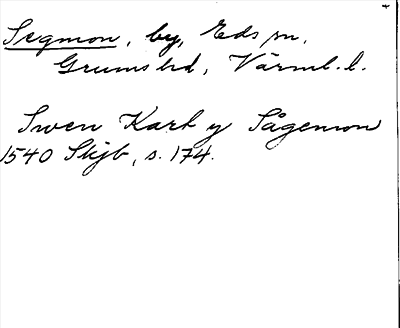 Segmon, by, Eds sn,
Grums hd, Värml. l.
Swen Karl y Sågemon
1540 Skjb, s. 174.